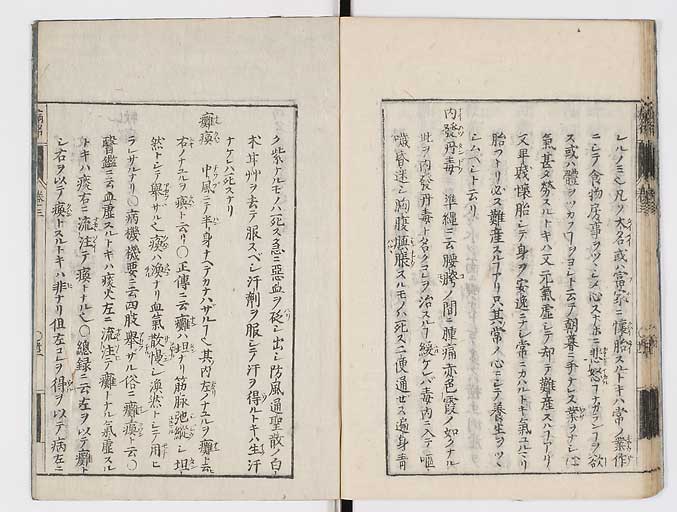 レルノミ凡ソ大名或ハ富家ニ懐胎スルトキハ常ノ業作
ニシテ食物房事ヲツヽシメ心スナホニ悲怒ナカランコヲ欲
ス或ハ體ヲツカフヿヲヨシト云テ朝暮ニ手ナレス業ヲナシ心
気甚タ労スルトキハ又元氣虚シテ却テ難産スルヿアリ
又平賤懐胎シテ身ヲ安逸ニシテ常ニカハルトキ氣ユルミ
胎フトリ必ス難産スルヿアリ只其常ノ心ニシテ養生ヲツヽ
シムベシト云リ
内發丹毒 準縄ニ云腰胯ノ間ニ腫痛赤色霞ノ如クナル
此ヲ内發丹毒ト名クコレヲ治スルヿ緩ケレバ毒内ニ入テ嘔
噦昏迷シ胸腹膨脹スルモノハ死ス二便通セス遍身青
ク紫ナルモノハ死ス急ニ惡血ヲ砭シ出シ防風通聖散ノ白
朮甘艸ヲ去テ服スベシ汗劑ヲ服シテ汗ヲ得ルトキハ生汗
ナケレハ死スナリ
癱瘓 中風ニテ半身ナヘテカナハサルヿ其内左ノナユルヲ癱ト云
右ノナユルヲ瘓ト云リ〇正傳ニ云癱ハ坦ナリ筋脉弛縱シ坦
然トシテ擧サル也瘓ハ渙ナリ血氣散慢シ渙然トシテ用ヒ
ラレサルナリ〇病機機要ニ云四肢擧サル俗ニ癱瘓ト云〇
醫鑑ニ云血虚スルトキハ痰火左ニ流注シテ癱トナル氣虚スル
トキハ痰右ニ流注シテ瘓トナル〇總録ニ云左ヲ以テ癱ト
シ右ヲ以テ瘓トスルトキハ非ナリ但左コレヲ得ヲ以テ病左ニ
巻三